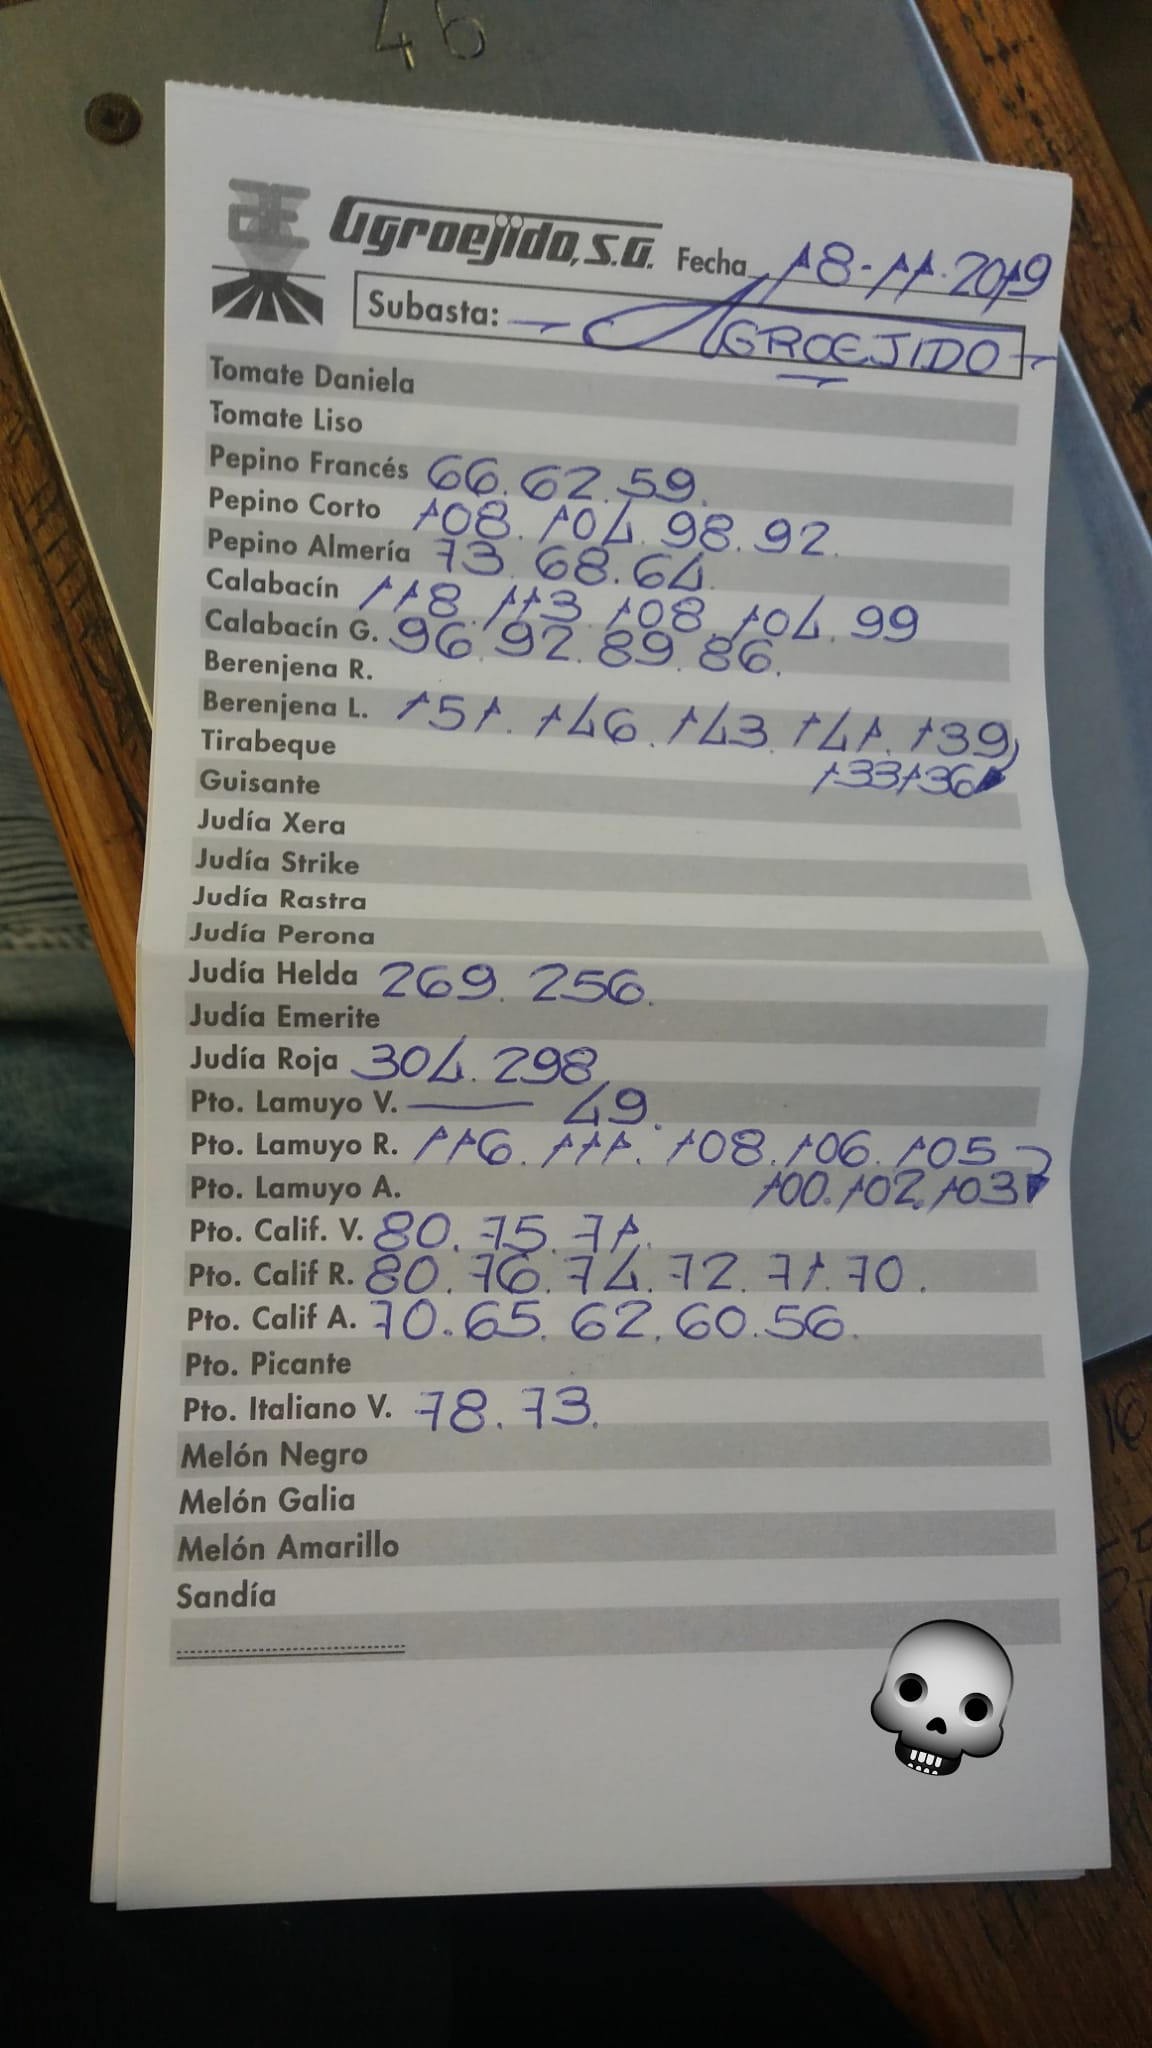 46
Agroejido, S.A. Fecha 18-11-2019
Subasta: AGROEJIDO
Tomate Daniela
Tomate Liso
Pepino Francés 66. 62. 59.
Pepino Corto 108. 104. 98. 92.
Pepino Almería 73. 68. 64.
Calabacín 118. 113. 108. 104. 99
Calabacín G. 96. 92. 89. 86.
Berenjena R.
Berenjena L. 151. 146. 143. 141. 139
Tirabeque
133 136
Guisante
Judía Xera
Judía Strike
Judía Rastra
Judía Perona
Judía Helda 269. 256.
Judía Emerite
Judía Roja 304. 298
Pto. Lamuyo V. — 49.
Pto. Lamuyo R. 116. 111. 108. 106. 105
Pto. Lamuyo A. 100. 102. 103
Pto. Calif. V. 80. 75. 71.
Pto. Calif R. 80. 76. 74. 72. 71. 70.
Pto. Calif A. 70. 65. 62. 60. 56.
Pto. Picante
Pto. Italiano V. 78. 73.
Melón Negro
Melón Galia
Melón Amarillo
Sandía